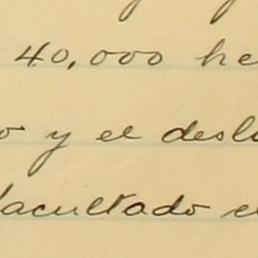 40,000 he
o y el desli
facultado el